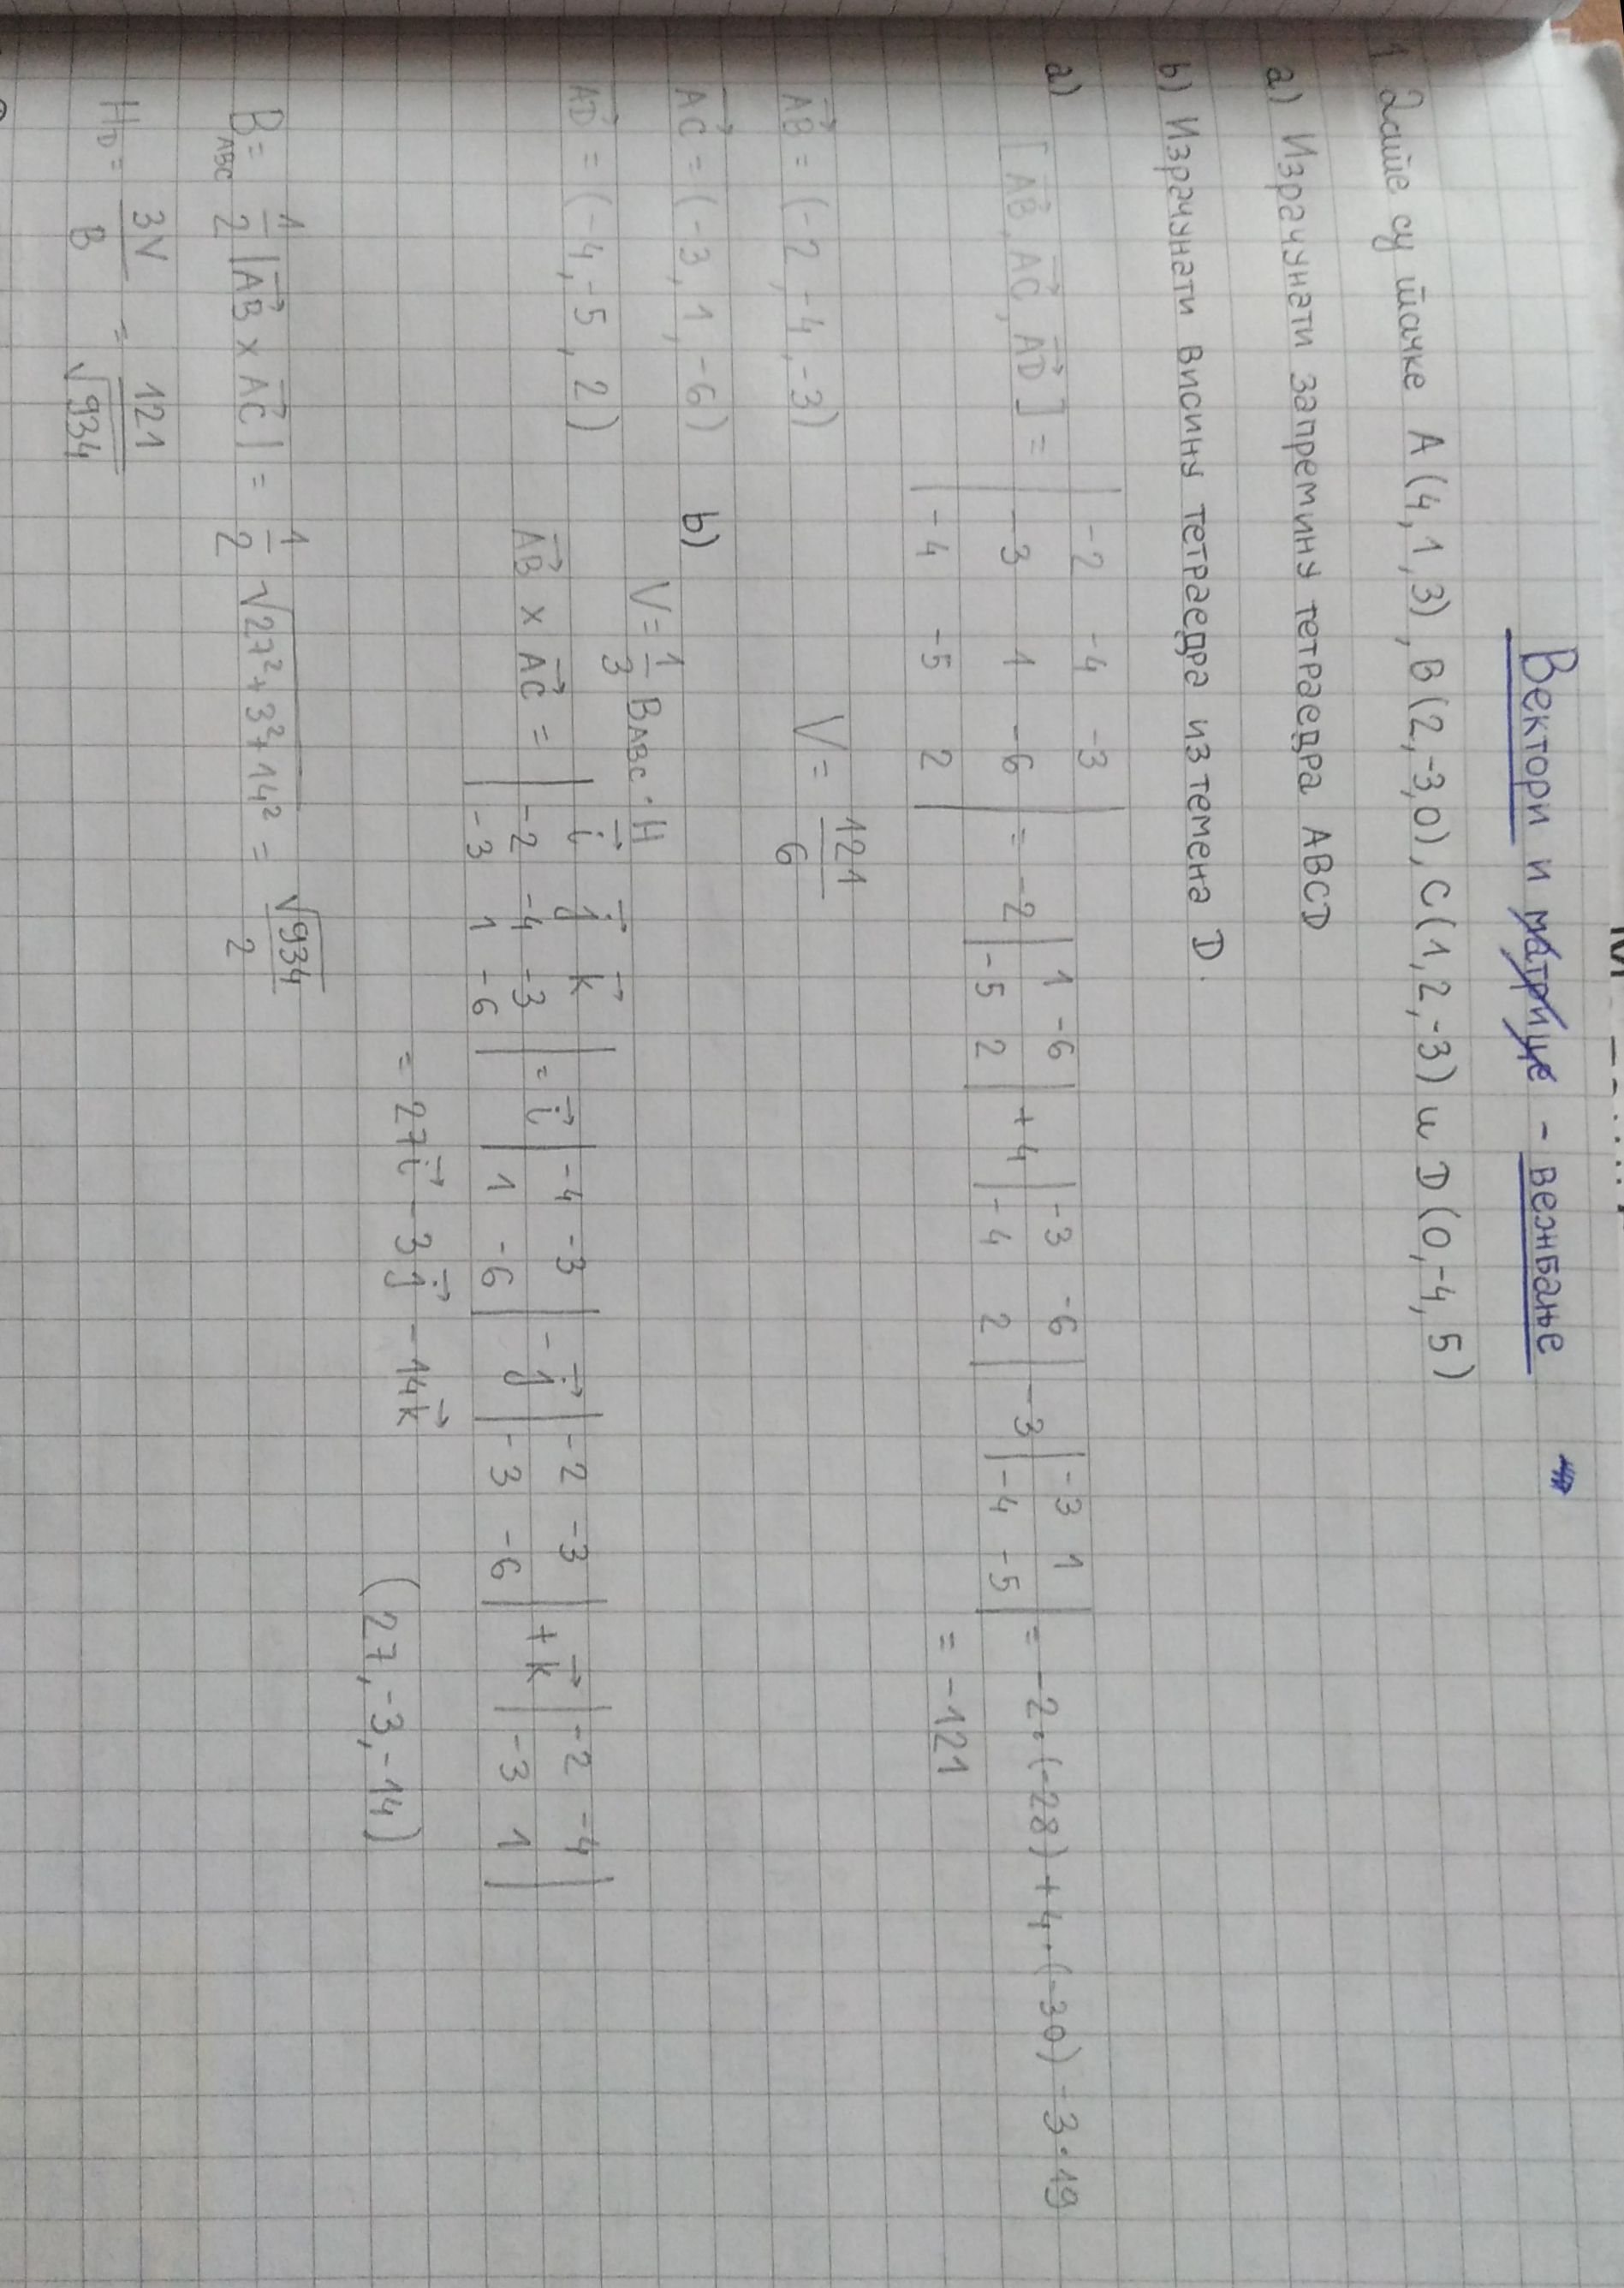 Вектори и матрице - вежбање
1 Дате су тачке A(4,1,3), B(2,-3,0), C(1,2,-3) и D(0,-4,5)
a) Израчунати запремину тетраедра ABCD
b) Израчунати висину тетраедра из темена D.
a) [AB→, AC→, AD→] = | -2 -4 -3 | -3 1 -6 | -4 -5 2 | = -2 | 1 -6 | -5 2 | + 4 | -3 -6 | -4 2 | - 3 | -3 1 | -4 -5 | = -2·(-28) + 4·(-30) - 3·19
= -121
AB→ = (-2,-4,-3) V = 121/6
AC→ = (-3,1,-6)
AD→ = (-4,-5,2)
b) V = 1/3 B_ABC · H
AB→ × AC→ = | i→ j→ k→ | -2 -4 -3 | -3 1 -6 | = i→ | -4 -3 | 1 -6 | - j→ | -2 -3 | -3 -6 | + k→ | -2 -4 | -3 1 |
= 27i→ - 3j→ - 14k→ (27,-3,-14)
B_ABC = 1/2 |AB→ × AC→| = 1/2 √27²+3²+14² = √934/2
H_D = 3V/B = 121/√934